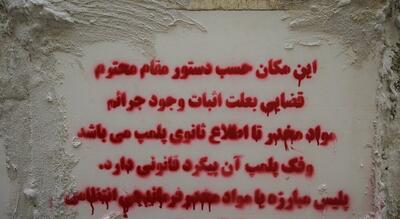 این مکان حسب دستور مقام محترم
قضایی بعلت اثبات وجود جرائم
مواد مخدر تا اطلاع ثانوی پلمب می باشد
وفک پلمب آن پیگرد قانونی دارد.
پلیس مبارزه با مواد مخدر فرماندهی انتظامی